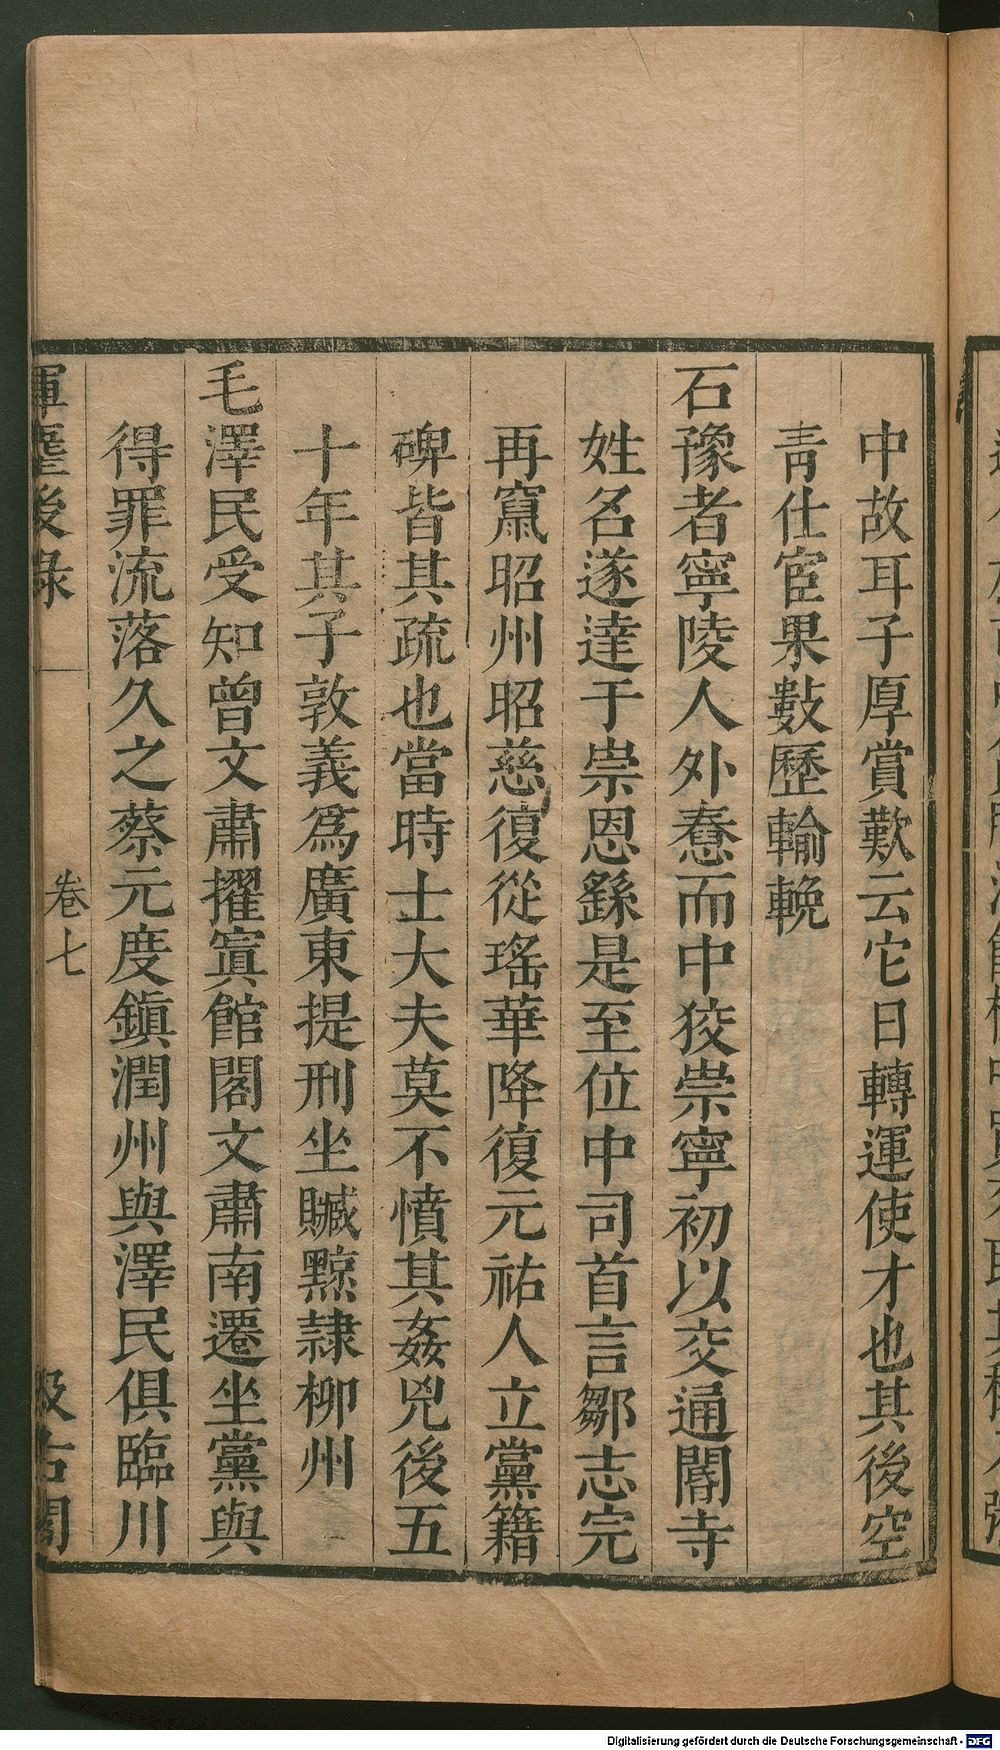 中故耳子厚賞歎云它日轉運使才也其後空
青仕宦果敭歷輸輓
石豫者寧陵人外憃而中狡崇寧初以交通閽寺
姓名遂達于崇恩繇是至位中司首言鄒志完
再竄昭州昭慈復從瑤華降復元祐人立黨籍
碑皆其疏也當時士大夫莫不憤其姦兇後五
十年其子敦義爲廣東提刑坐贓黥隷柳州
毛澤民受知曾文肅擢寘館閣文肅南遷坐黨與
得罪流落久之蔡元度鎮潤州與澤民俱臨川
揮麈後錄
卷七
汲古閣
Digitalisierung gefördert durch die Deutsche Forschungsgemeinschaft - DFG